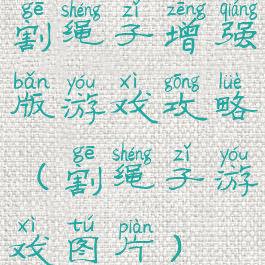 gē shéng zǐ zēng qiáng
割绳子增强
bǎn yóu xì gōng lüè
版游戏攻略
gē shéng zǐ yóu
（割绳子游
xì tú piàn
戏图片）